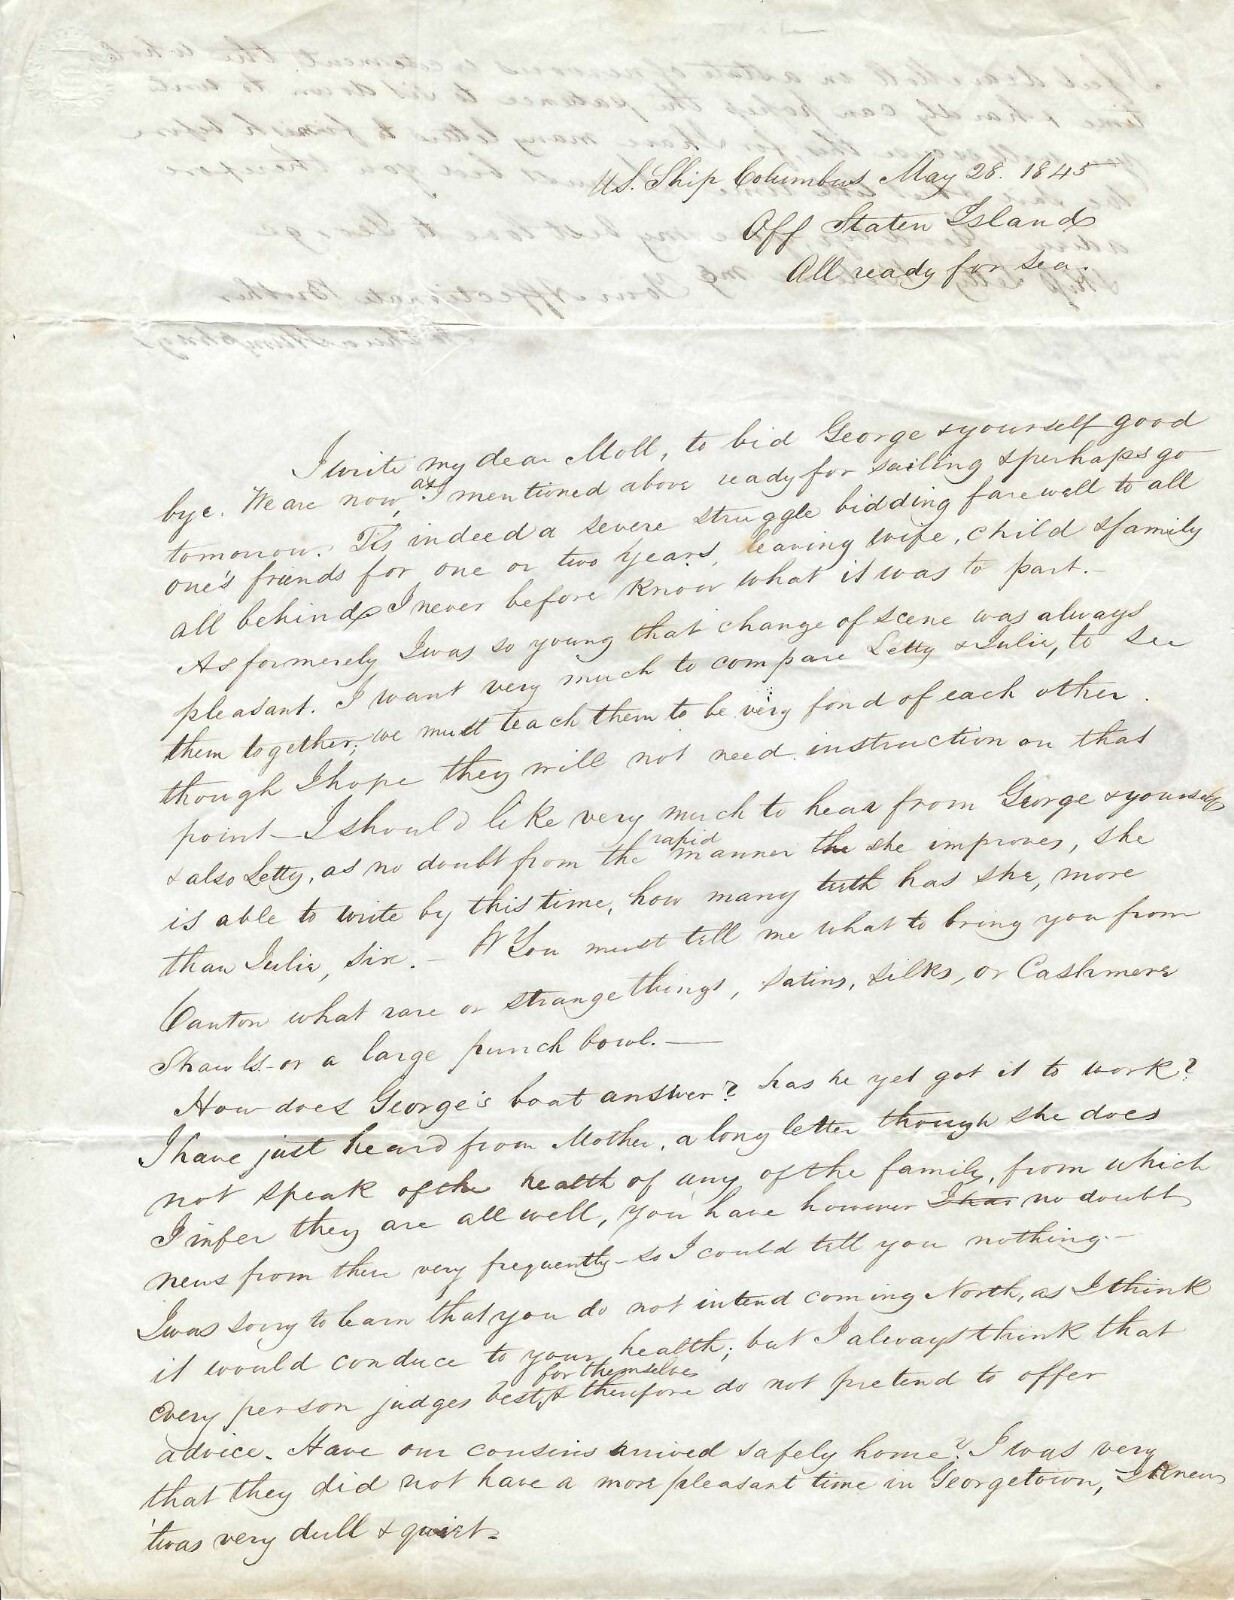 U.S. Ship Columbus May 28. 1845
Off Staten Island
All ready for sea.
I write my dear Moll, to bid George & yourself good
bye. We are now, as I mentioned above ready for sailing & perhaps go
tomorrow. Tis indeed a severe struggle bidding farewell to all
one's friends for one or two years, leaving wife, child & family
all behind I never before know what it was to part.-
As formerly I was so young that change of scene was always
pleasant. I want very much to compare Letty & Julie, to see
them together, we must teach them to be very fond of each other.
though I hope they will not need instruction on that
point - I should like very much to hear from George & yourself
& also Letty, as no doubt from the rapid manner the she improves, she
is able to write by this time, how many teeth has she, more
than Julie, six. - You must tell me what to bring you from
Canton what rare or strange things, satins, silks, or Cashmere
Shawls - or a large punch bowl. —
How does George's boat answer? has he yet got it to work?
I have just heard from Mother, a long letter though she does
not speak of the health of any of the family, from which
I infer they are all well, you have however I has no doubt
news from there very frequently - so I could tell you nothing. -
I was sorry to learn that you do not intend coming North, as I think
it would conduce to your health; but I always think that
every person judges best for themselves & therefore do not pretend to offer
advice. Have our cousins arrived safely home? I was very
that they did not have a more pleasant time in Georgetown, I knew
'twas very dull & quiet -